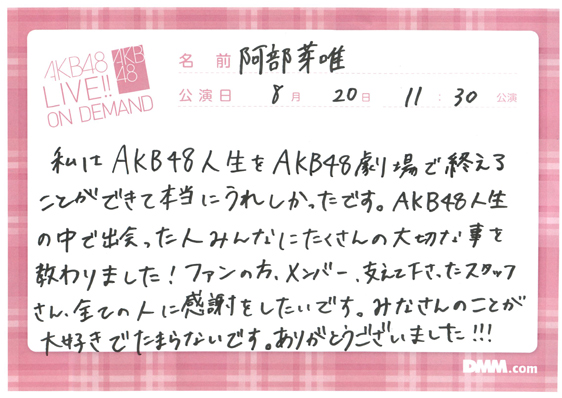 AKB48
LIVE!!
ON DEMAND
AKB
48
名前 阿部芽唯
公演日 8月 20日 11:30 公演
私は AKB48人生を AKB48劇場で終える
ことができて本当にうれしかったです。AKB48人生
の中で出会った人みんなにたくさんの大切な事を
教わりました!ファンの方、メンバー、支えて下さったスタッフ
さん、全ての人に感謝をしたいです。みなさんのことが
大好きでたまらないです。ありがとうございました!!!
DMM.com